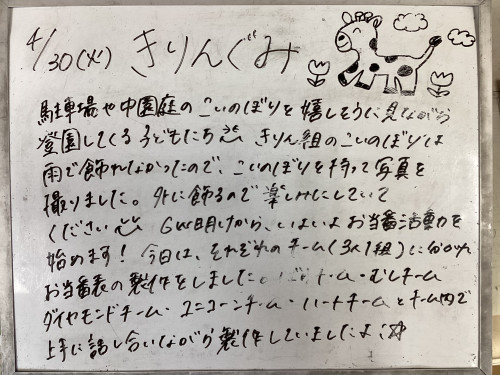 4/30(火) きりんぐみ
駐車場や中園庭のこいのぼりを嬉しそうに見ながら
登園してくる子どもたち きりん組のこいのぼりは
雨で飾れなかったので、こいのぼりを持って写真を
撮りました。外に飾るので楽しみにしていて
ください GW明けから、いよいよお当番活動を
始めます! 今日は、それぞれのチーム(3人1組)に分かれ
お当番表の製作をしました。 チーム・むしチーム
ダイヤモンドチーム・ユニコーンチーム・ハートチームとチーム内で
上手に話し合いながら製作していましたよ